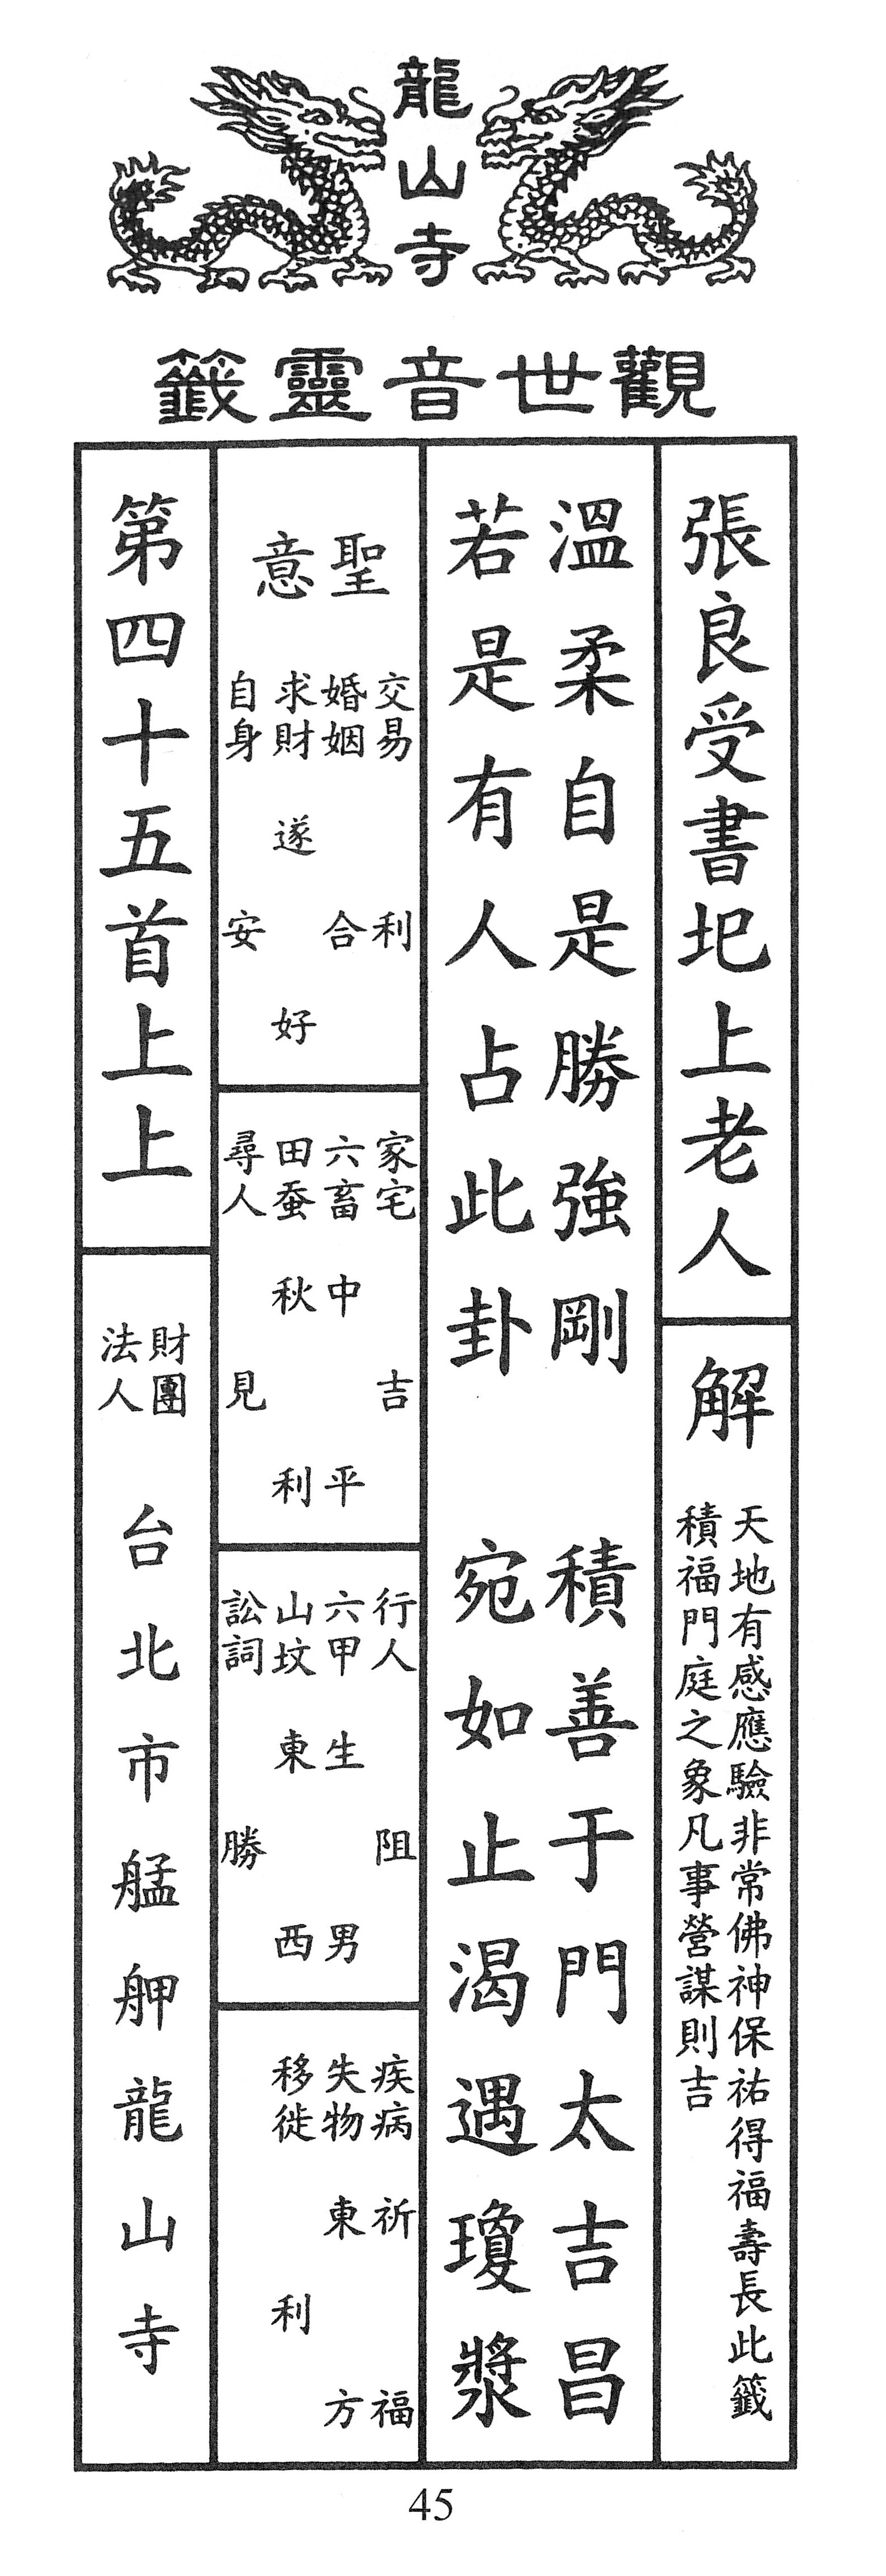 龍山寺
觀世音靈籤
張良受書圯上老人
解
天地有感應驗非常佛神保祐得福壽長此籤
積福門庭之象凡事營謀則吉
溫柔自是勝強剛 積善于門太吉昌
若是有人占此卦 宛如止渴遇瓊漿
聖意
交易 利
婚姻 合
求財 遂好
自身 安
家宅 吉
六畜 中平
田蚕 秋利
尋人 見
行人 阻
六甲 生男
山坟 東西
訟詞 勝
疾病 祈福
失物 東方
移徙 利
第四十五首上上
財團法人 台北市艋舺龍山寺
45